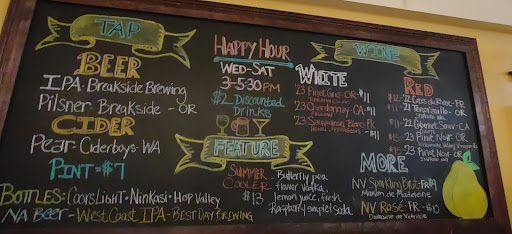 TAP
BEER
IPA-Breakside Brewing
Pilsner-Breakside-OR
CIDER
Pear-Ciderboys-WA
PINT=$7
BOTTLES: COORS LIGHT • NINKASI • HOP VALLEY
NA BEER-WEST COAST IPA-BEST DAY BREWING
HAPPY HOUR
WED-SAT
3-5:30PM
$2 Discounted
Drinks
FEATURE
SUMMER
COOLER
$13
Butterfly pea
flower vodka,
lemon juice, fresh
Raspberry simple, soda
WINE
WHITE
'23 Pinot Gris-OR-$11
'23 Chardonnay-CA
'23 Sauvignon Blanc
RED
Cotes du Rhone-FR
Tempranillo-OR
Cabernet Sauv-CA
Pinot Noir-OR
Pinot Noir-OR
MORE
NV Sparkling Brut-FR
Maison de Madeleine
NV Rosé-FR-$10
Domaine de